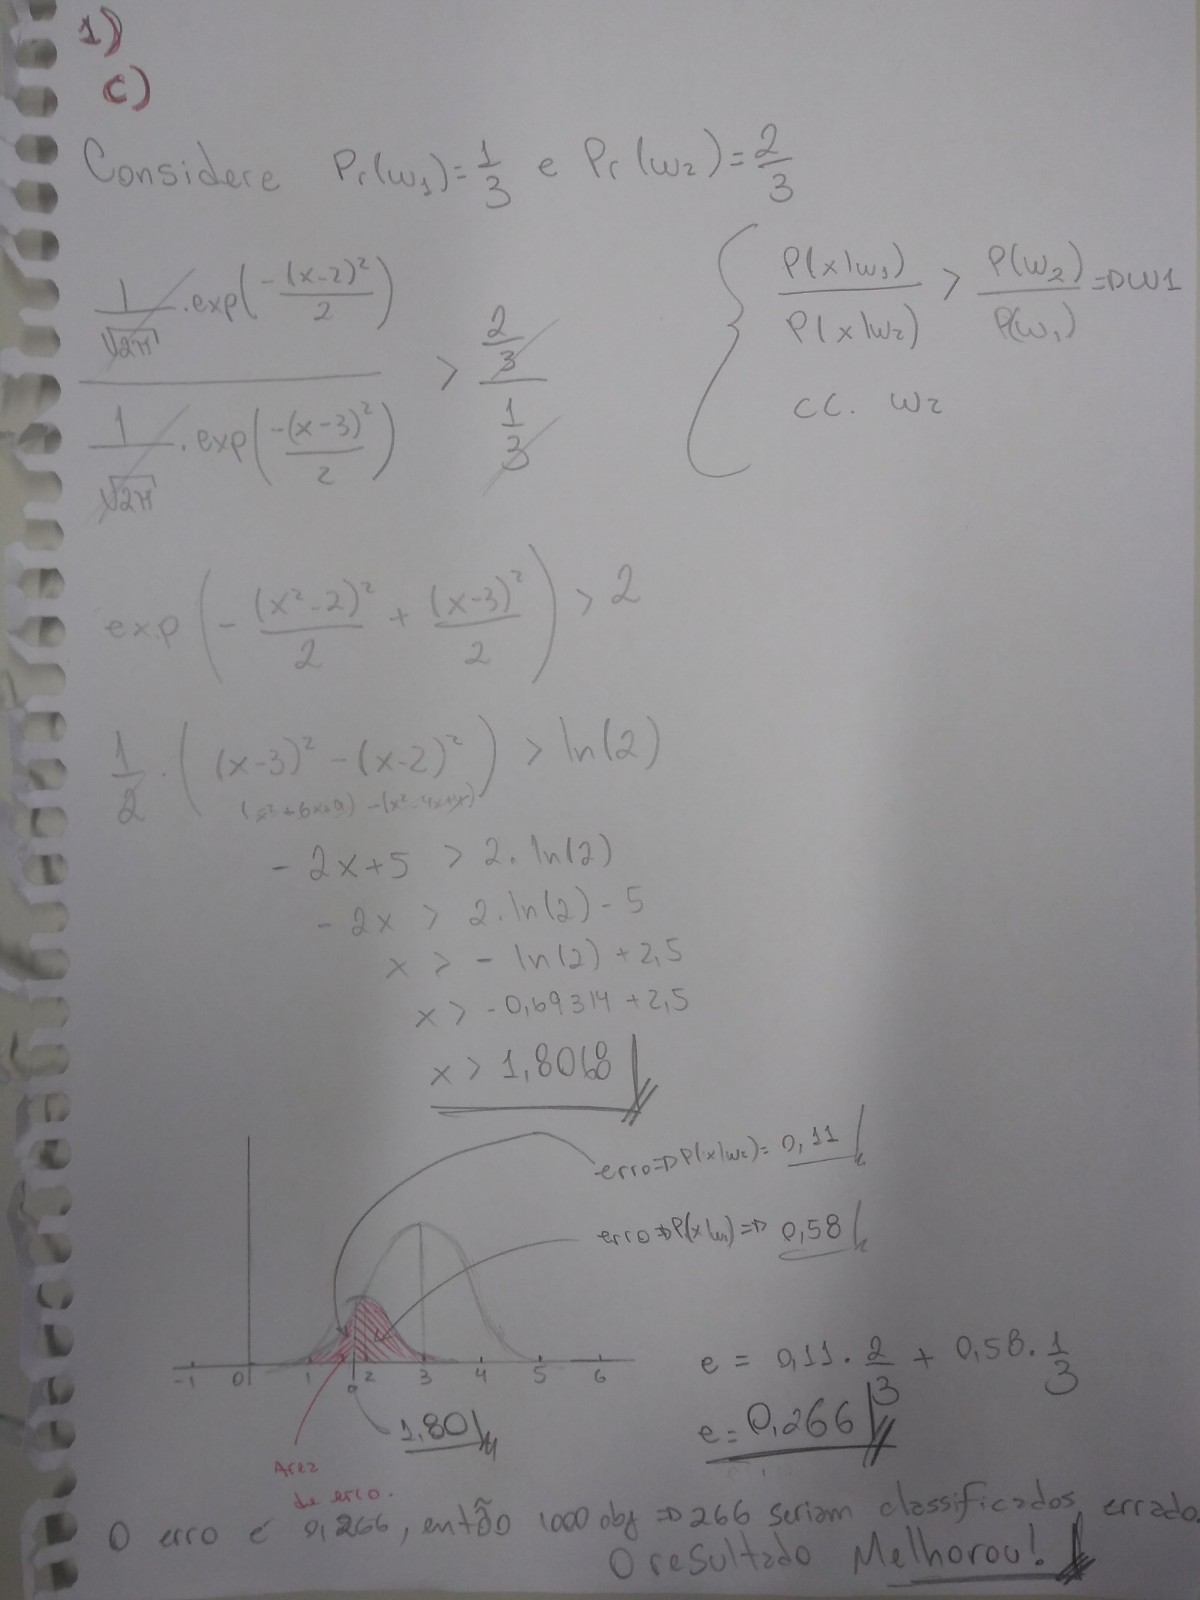 1)
c)
Considere Pr(w1)=1/3 e Pr(w2)=2/3
1/√2π .exp(-(x-2)²/2) / 1/√2π .exp(-(x-3)²/2) > 2/3 / 1/3
{ P(x|w1)/P(x|w2) > P(w2)/P(w1) => w1
cc. w2
exp(-(x²-2)²/2 + (x-3)²/2) > 2
1/2 . ((x-3)² - (x-2)²) > ln(2)
-2x+5 > 2.ln(2)
-2x > 2.ln(2) - 5
x > - ln(2) + 2,5
x > -0,69314 + 2,5
x > 1,8068
erro => P(x|w2) = 0,11
erro => P(x|w1) => 0,58
-1 0 1 2 3 4 5 6
1,80
e = 0,11.2/3 + 0,58.1/3
e = 0,266
Area
de erro.
O erro é 0,266, então 1000 obj => 266 seriam classificados errado.
O resultado Melhorou!